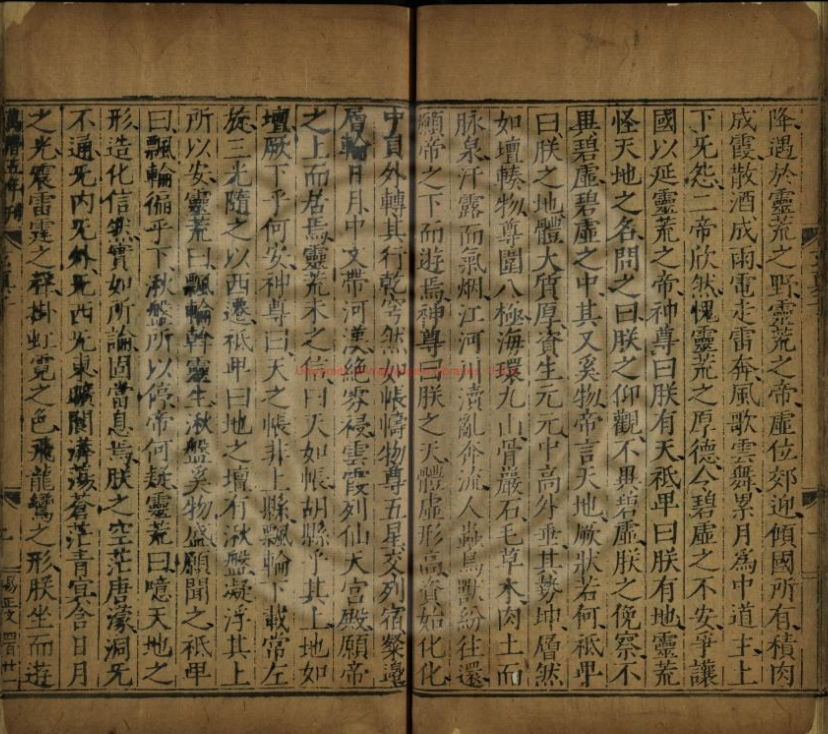 降遇於靈荒之野靈荒之帝虛位郊迎傾國所有積肉
成霞散酒成雨電走雷奔風歌雲舞累月為中道主上
下旡怨二帝欣然愧靈荒之厚德今碧虛之不安爭讓
國以延靈荒之帝神尊曰朕有天祇卑曰朕有地靈荒
怪天地之名問之曰朕之仰觀不異碧虛朕之俛察不
異碧虛碧虛之中其又奚物帝言天地厥狀若何祇卑
曰朕之地體大質厚資生元元中高外垂其勢坤層然
如壇輳物尊圍八極海環九山骨巖石毛草木肉土而
脉泉汗露而氣烟江河川瀆亂奔流人蟲鳥獸紛往還
願帝之下而遊焉神尊曰朕之天體虛形高資始化化
中貟外轉其行乾穹然如帳幬物尊五星交列宿粲邉
層輪日月中文帶河漢絶雰祲雲霞列仙大宫殿願帝
之上而居焉靈荒未之信曰天如帳胡縣乎其上地如
壇厥下乎何安神尊曰天之帳非上縣飄輪下載常左
旋三光隨之以西還祇卑曰地之壇有湫盤凝浮其上
所以安靈荒曰飄輪幹靈生湫盤奚物盛願聞之祇卑
曰飄輪循乎下湫盤所以停帝何疑靈荒曰噫天地之
形造化信然實如所論固當息焉朕之空茫唐濛洞旡
不通旡内旡外旡西旡東曠閬漭蕩蒼茫青㝠含日月
之光震雷霆之聲掛虹霓之色飛龍鸞之形朕坐而遊
萬曆五年刊
易正文